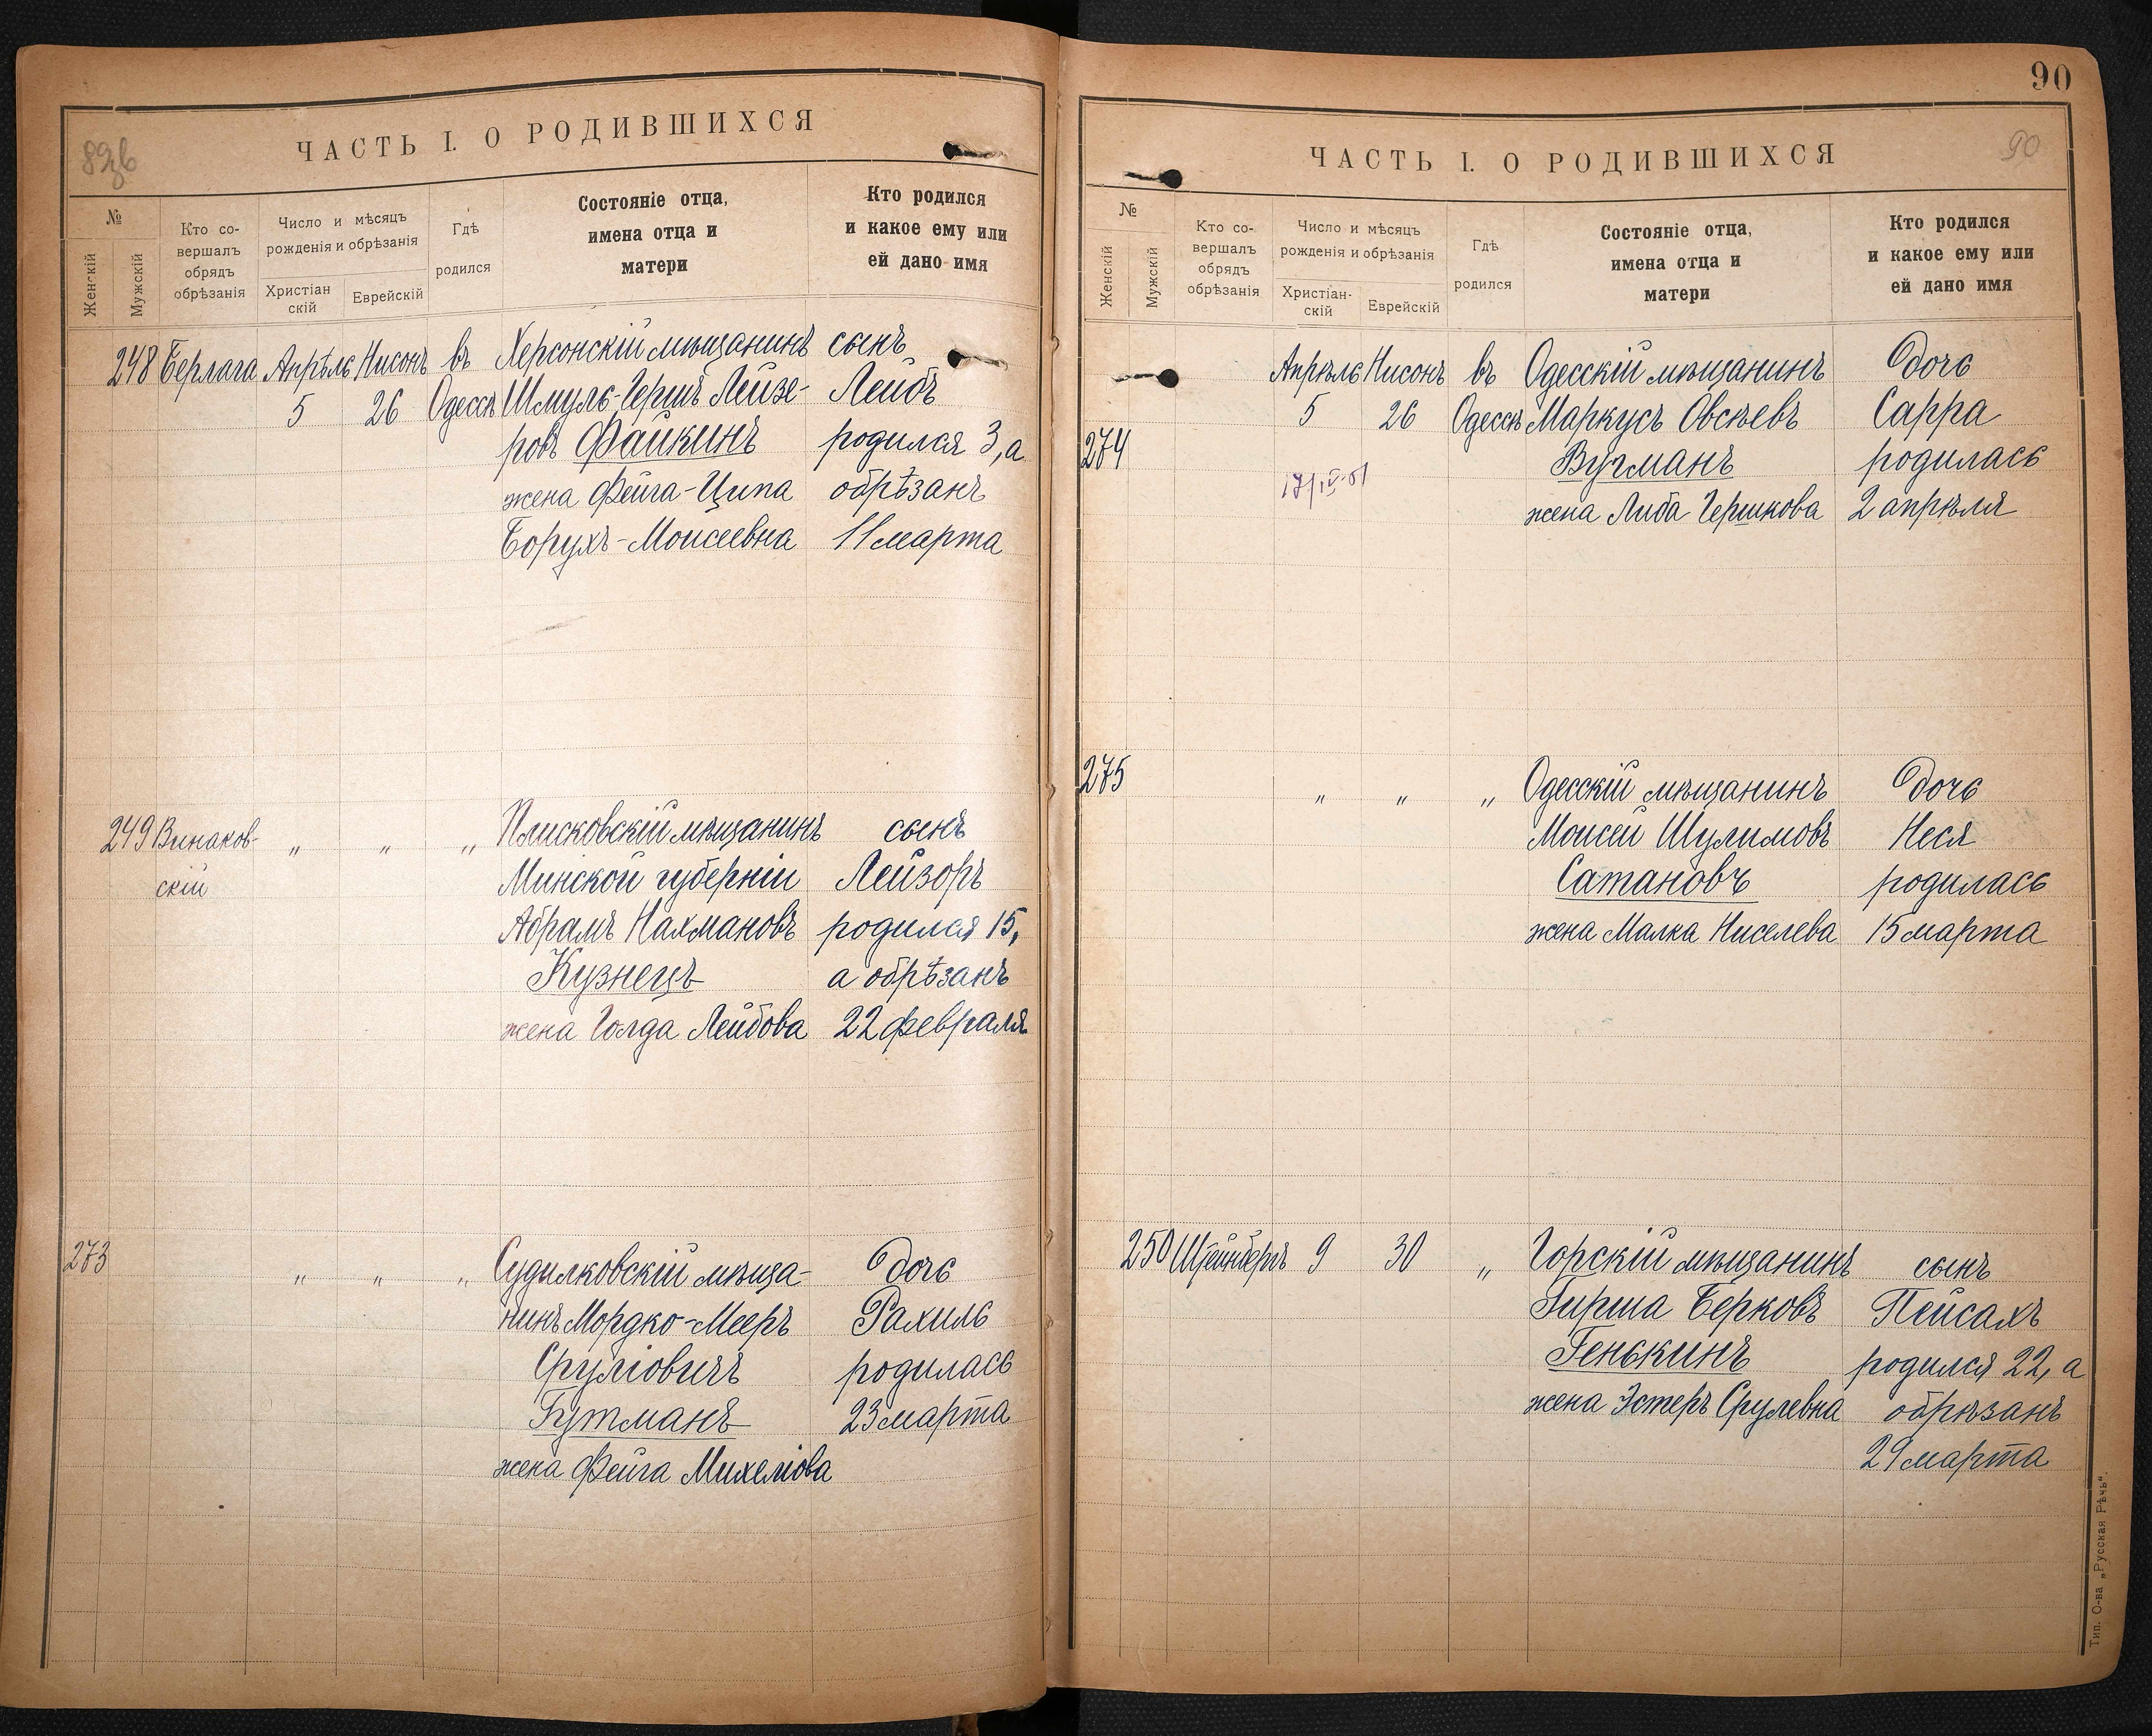 ЧАСТЬ I. О РОДИВШИХСЯ
№
Женскій
Мужскій
Кто со-
вершалъ
обрядъ
обрѣзанія
Число и мѣсяцъ
рожденія и обрѣзанія
Христіан
скій
Еврейскій
Гдѣ
родился
Состояніе отца,
имена отца и
матери
Кто родился
и какое ему или
ей дано имя
248 Берлага Апрѣль Нисонъ въ Херсонскій мѣщанинъ сынъ
5 26 Одессѣ Шмуль-Гершъ Лейзе- Лейбъ
ровъ Файкинъ родился 3, а
жена Фейга-Ципа обрѣзанъ
Борухъ-Моисеевна 11 марта
249 Винаков- „ „ „ Плисковскій мѣщанинъ сынъ
скій Минской губерніи Лейзоръ
Абрамъ Нахмановъ родился 15,
Кузнецъ а обрѣзанъ
жена Голда Лейбова 22 февраля
273 „ „ „ Судилковскій мѣща- дочь
нинъ Мордко-Мееръ Рахиль
Сруліовичъ родилась
Гутманъ 23 марта
жена Фейга Михеліова
90
ЧАСТЬ I. О РОДИВШИХСЯ
90
№
Женскій
Мужскій
Кто со-
вершалъ
обрядъ
обрѣзанія
Число и мѣсяцъ
рожденія и обрѣзанія
Христіан-
скій
Еврейскій
Гдѣ
родился
Состояніе отца,
имена отца и
матери
Кто родился
и какое ему или
ей дано имя
Апрѣль Нисонъ въ Одесскій мѣщанинъ дочь
5 26 Одессѣ Маркусъ Овсѣевъ Сарра
274 Вугманъ родилась
жена Либа Гершкова 2 апрѣля
275 „ „ „ Одесскій мѣщанинъ дочь
Моисей Шулимовъ Неся
Сатановъ родилась
жена Малка Ниселева 15 марта
250 Штейнбергъ 9 30 „ Горскій мѣщанинъ сынъ
Гирша Берковъ Пейсахъ
Генькинъ родился 22, а
жена Эстеръ Срулевна обрѣзанъ
29 марта
Тип. О-ва „Русская Рѣчь“.